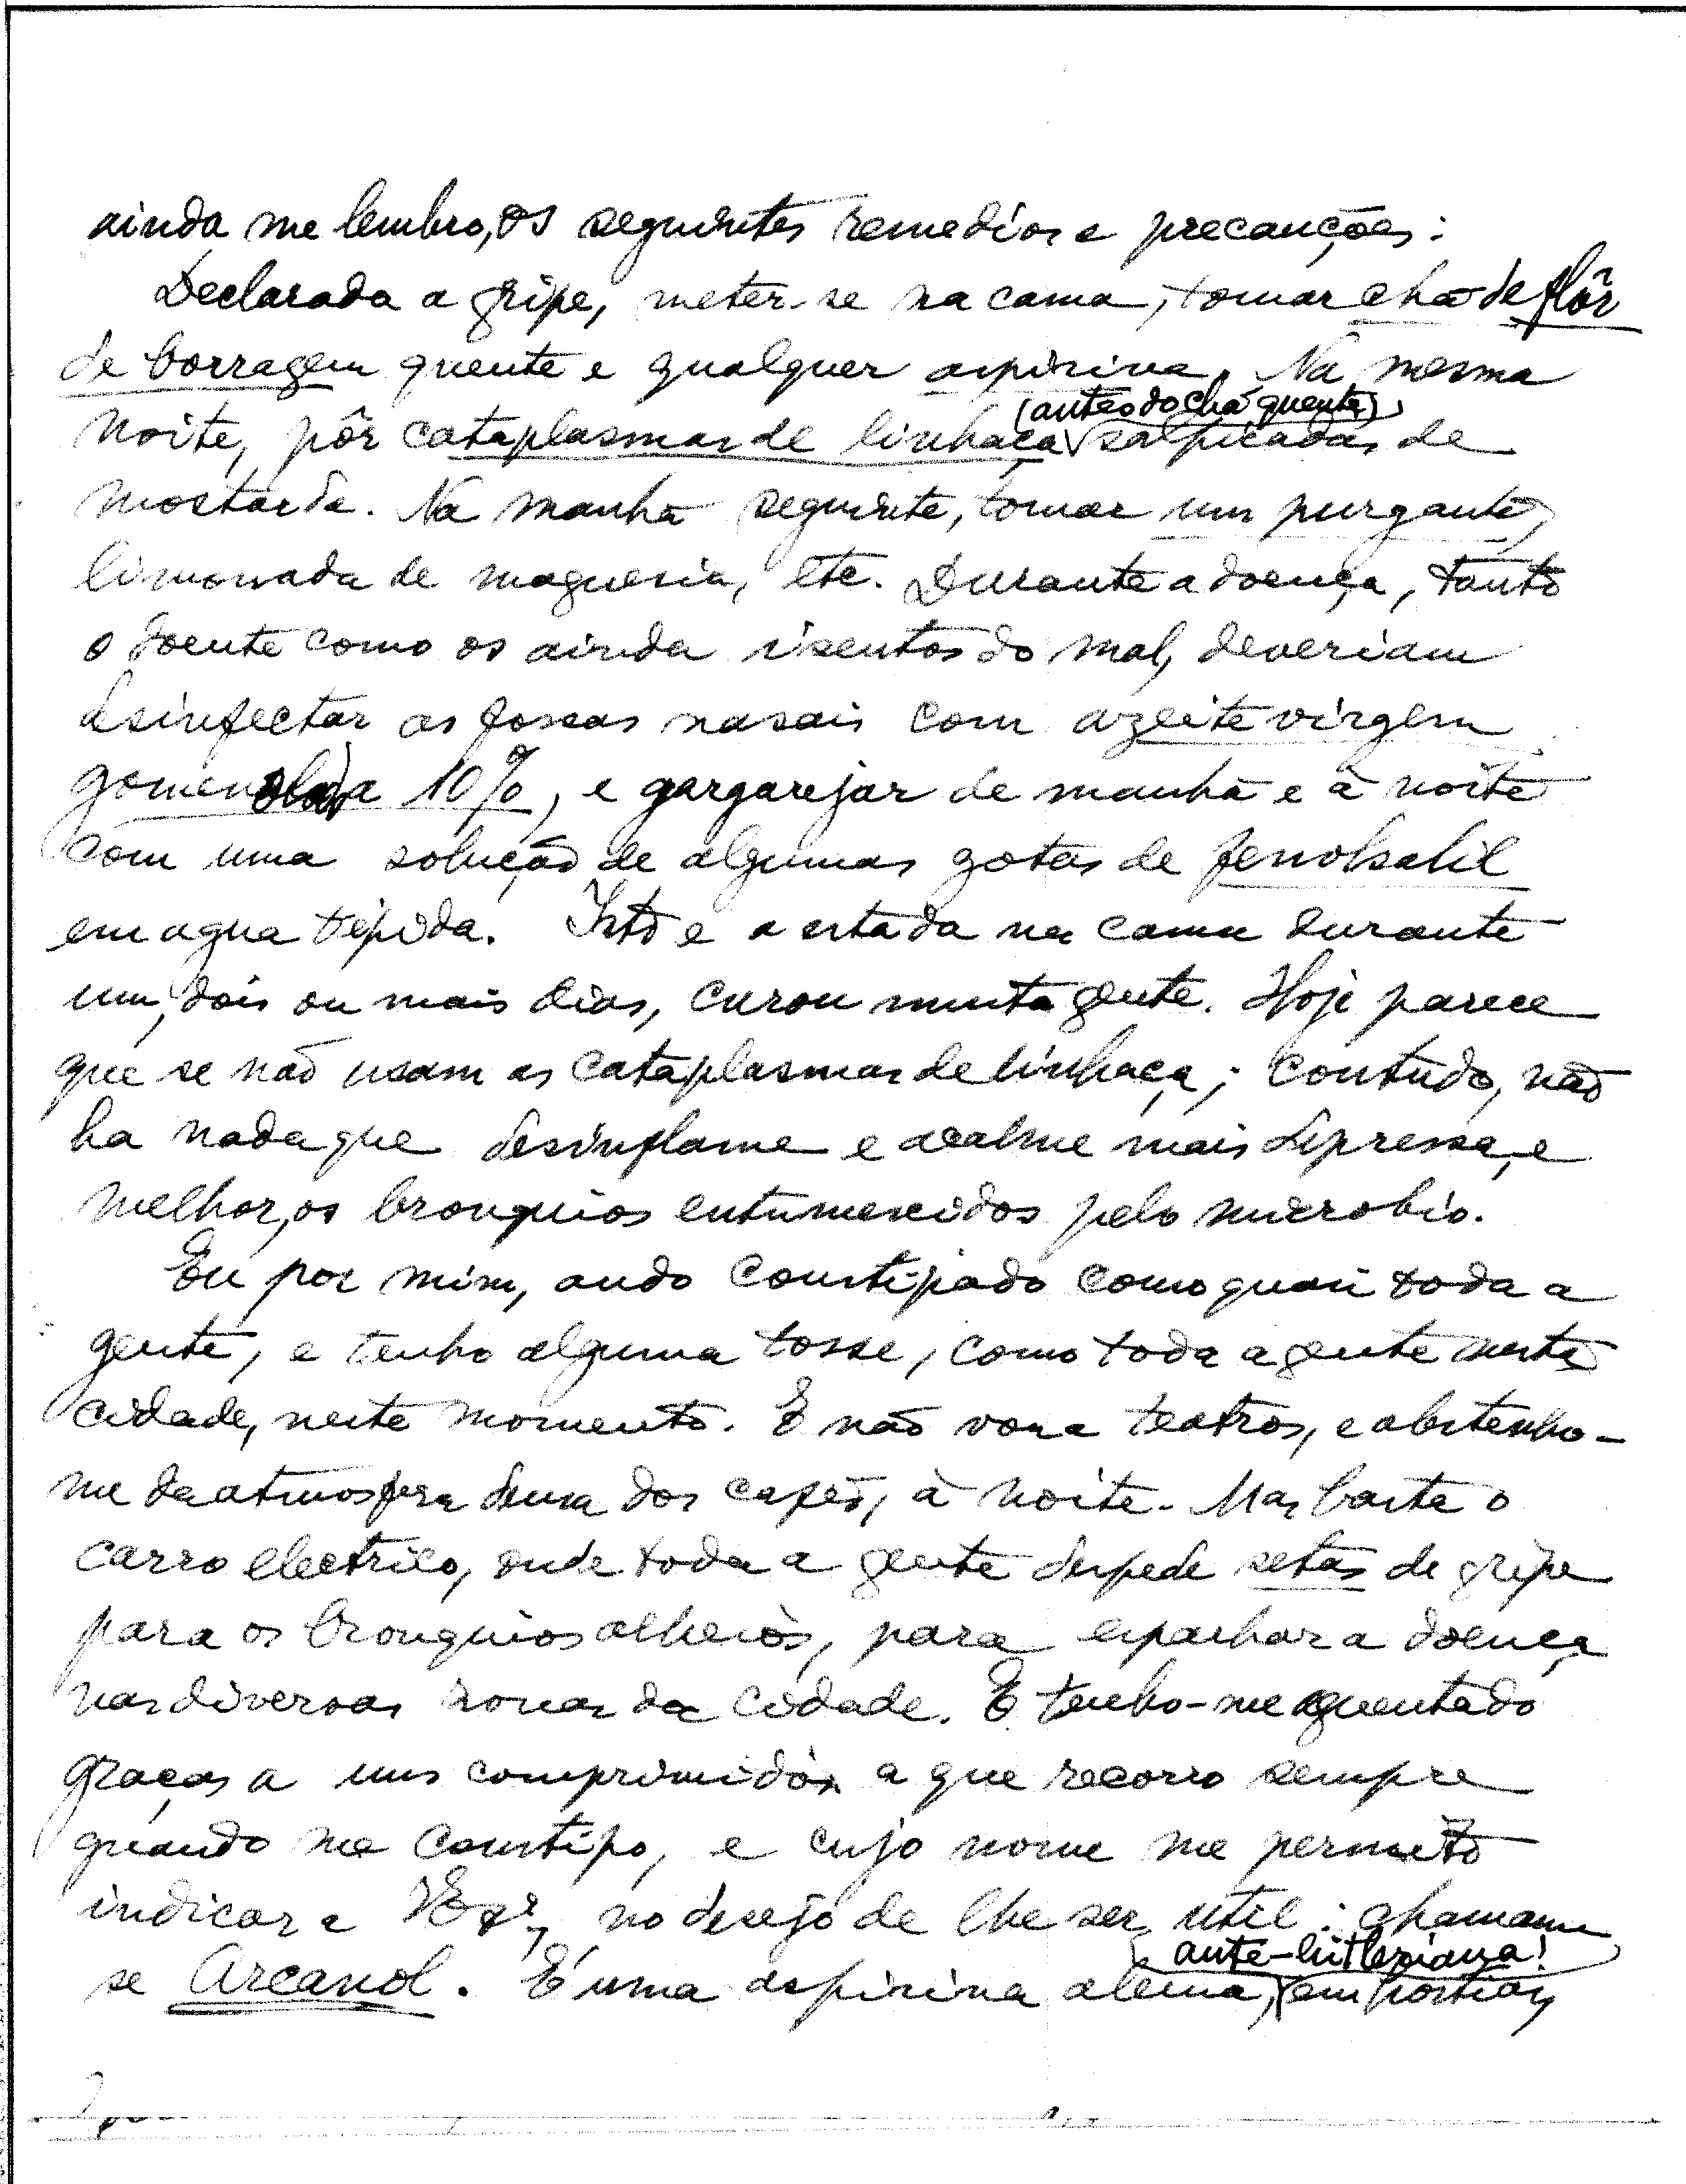 ainda me lembro, os seguintes remedios e precauções:
Declarada a gripe, meter-se na cama, tomar chá de flôr
de borragem quente e qualquer aspirina. Na mesma
(antes do chá quente)
noite, pôr cataplasmas de linhaça salpicadas de
mostarda. Na manhã seguinte, tomar um purgante,
limonada de magnesia, etc. Durante a doença, tanto
o doente como os ainda isentos do mal, deveriam
desinfectar as fossas nasais com azeite virgem
a 10%, e gargarejar de manhã e à noite
com uma solução de algumas gotas de fenolsalil
em agua tépida. Isto e a estada na cama durante
um, dois ou mais dias, curou muita gente. Hoje parece
que se não usam as cataplasmas de linhaça; contudo, não
ha nada que desinflame e acalme mais depressa, e
melhor, os bronquios entumescidos pelo microbio.
Eu por mim, ando constipado como quasi toda a
gente, e tenho alguma tosse, como toda a gente nesta
cidade, neste momento. E não vou a teatros, e abstenho-
me da atmosfera densa dos cafés, à noite. Mas basta o
carro electrico, onde toda a gente despede setas de gripe
para os bronquios alheios, para espalhar a doença
nas diversas zonas da cidade. E tenho-me aguentado
graças a uns comprimidos a que recorro sempre
quando me constipo, e cujo nome me permito
indicar a VExª, no desejo de lhe ser util: chamam
ante-hitleriana!
se Arcanol. É uma aspirina alemã, em